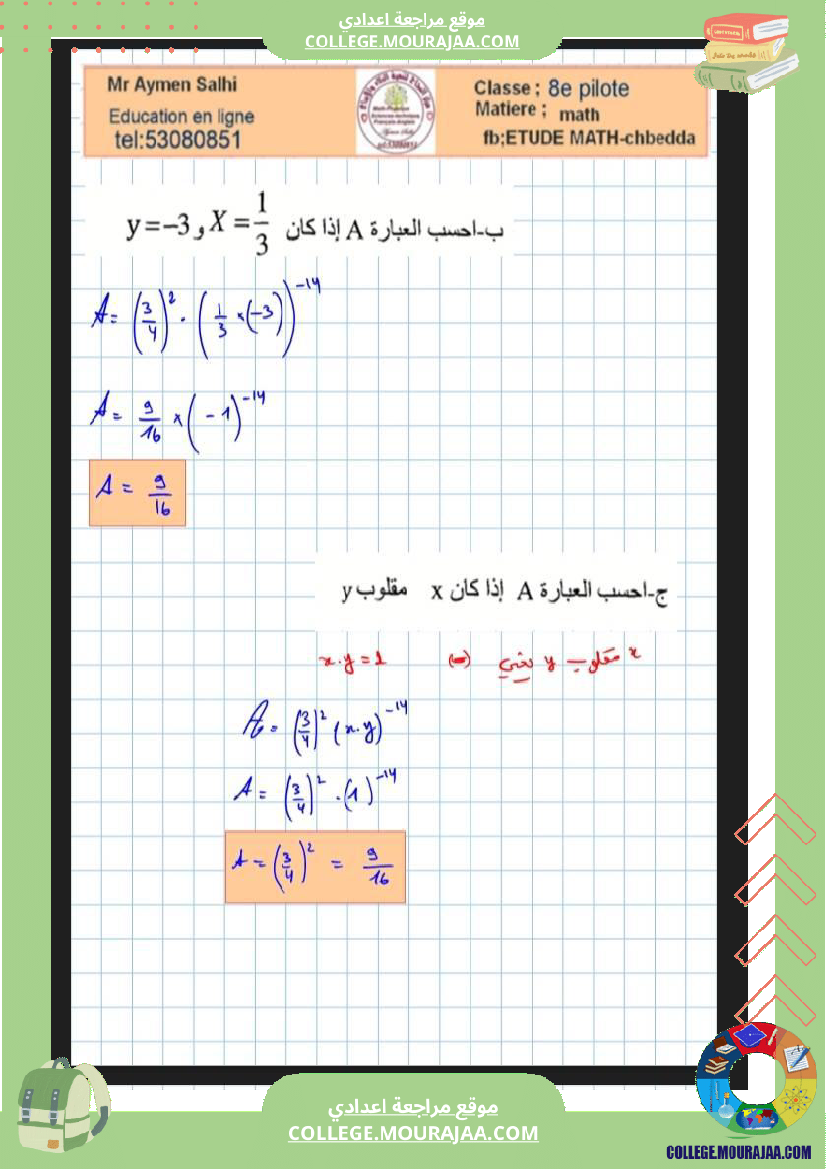 موقع مراجعة اعدادي
COLLEGE.MOURAJAA.COM
Mr Aymen Salhi
Education en ligne
tel:53080851
Classe ; 8e pilote
Matiere ; math
fb;ETUDE MATH-chbedda
ب-احسب العبارة A إذا كان X = 1/3 و y = -3
A = (3/4)² . (1/3 × (-3))⁻¹⁴
A = 9/16 × (-1)⁻¹⁴
A = 9/16
ج-احسب العبارة A إذا كان x مقلوب y
x مقلوب y يعني (=) x.y = 1
A = (3/4)² (x.y)⁻¹⁴
A = (3/4)² . (1)⁻¹⁴
A = (3/4)² = 9/16
موقع مراجعة اعدادي
COLLEGE.MOURAJAA.COM
COLLEGE.MOURAJAA.COM